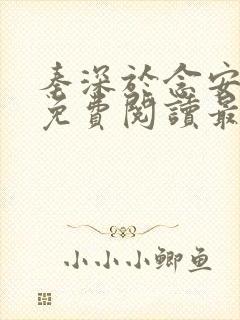 秦深於念安
免費閱讀最
小小小鲫鱼